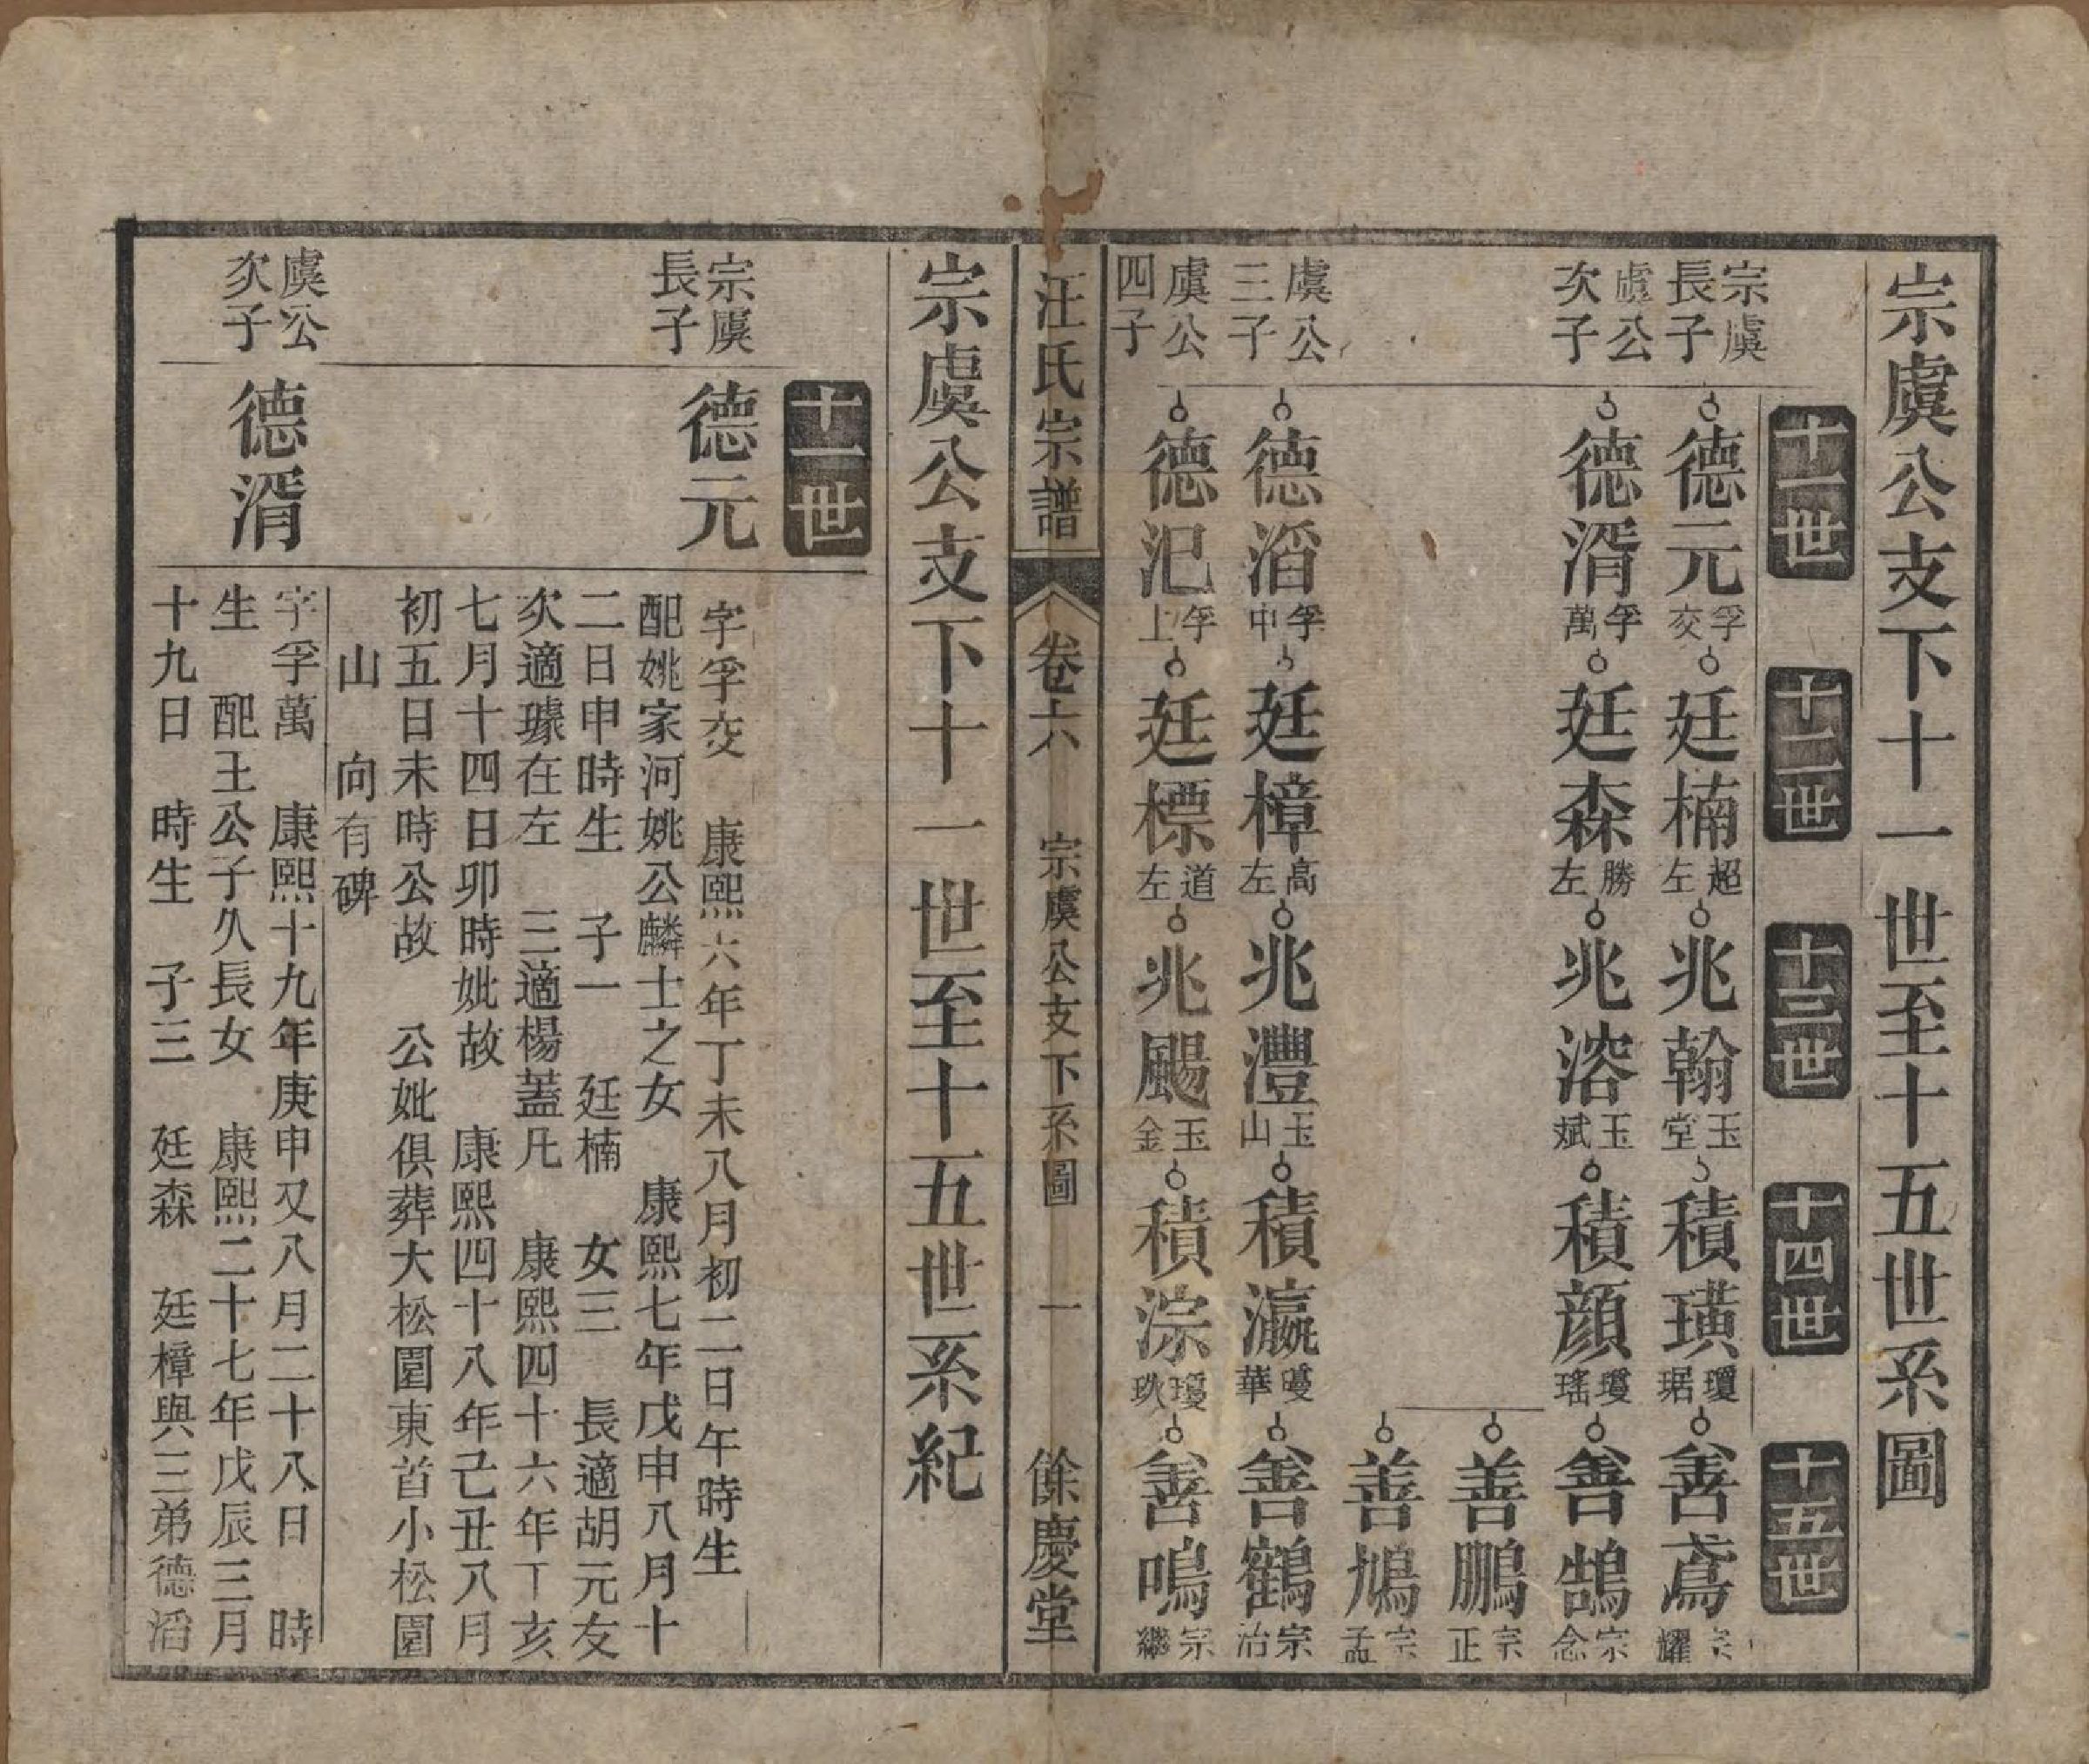 宗虞公支下十一世至十五世系圖
十一世
十二世
十三世
十四世
十五世
宗虞
長子
德元
孚
交
廷楠
超
左
兆翰
玉
堂
積璜
瓊
琚
善鳶
宗
耀
虞公
次子
德湑
孚
萬
廷森
勝
左
兆溶
玉
斌
積顔
瓊
瑤
善鵠
宗
念
善鵬
宗
正
善鳩
宗
孟
虞公
三子
德滔
孚
中
廷樟
高
左
兆灃
玉
山
積瀛
瓊
華
善鶴
宗
治
虞公
四子
德汜
孚
上
廷標
道
左
兆颺
玉
金
積淙
瓊
玖
善鳴
宗
繼
汪氏宗譜 卷六 宗虞公支下系圖 一 餘慶堂
宗虞公支下十一世至十五世系紀
十一世
宗虞
長子
德元
字孚交 康熙六年丁未八月初二日午時生
配姚家河姚公麟士之女 康熙七年戊申八月十
二日申時生 子一 廷楠 女三 長適胡元友
次適璩在左 三適楊蓋凡 康熙四十六年丁亥
七月十四日卯時妣故 康熙四十八年己丑八月
初五日未時公故 公妣俱葬大松園東首小松園
山 向有碑
虞公
次子
德湑
字孚萬 康熙十九年庚申又八月二十八日 時
生 配王公子久長女 康熙二十七年戊辰三月
十九日 時生 子三 廷森 廷樟與三弟德滔